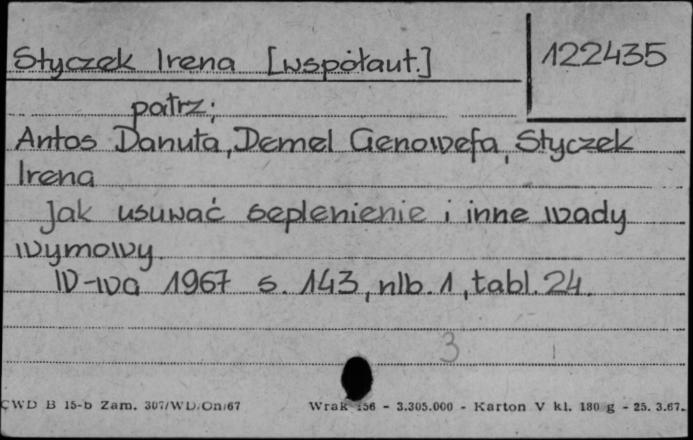 Styczek Irena [współaut.]
122435
patrz;
Antos Danuta, Demel Genowefa, Styczek
Irena
Jak usuwać seplenienie i inne wady
wymowy.
W-wa 1967 s. 143, nlb. 1, tabl. 24.
3
CWD B 15-b Zam. 307/WD/On/67 Wrak 156 - 3.305.000 - Karton V kl. 180 g - 25. 3.67.